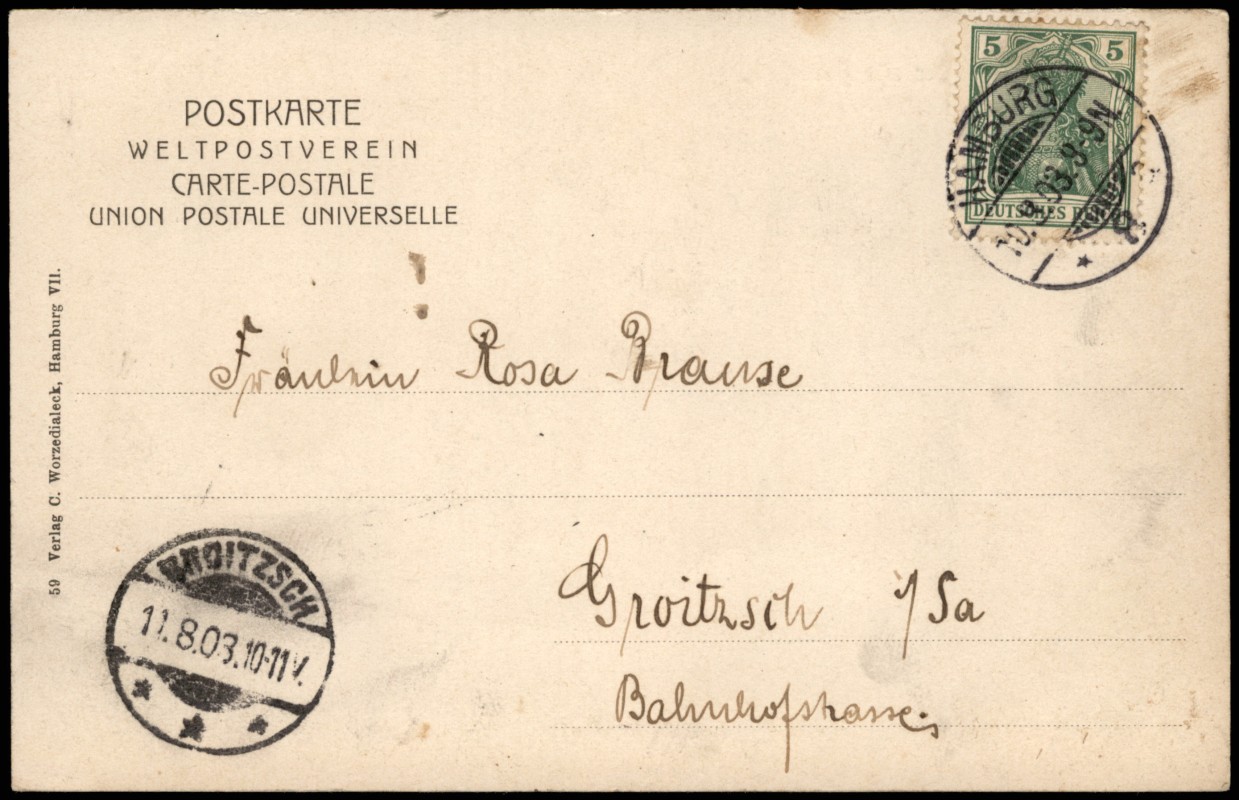 POSTKARTE
WELTPOSTVEREIN
CARTE-POSTALE
UNION POSTALE UNIVERSELLE
5 5
DEUTSCHES REICH
HAMBURG
10.8.03.8-9N
Fräulein Rosa Krause
Groitzsch i/Sa
Bahnhofstrasse
GROITZSCH
11.8.03.10-11V.
59 Verlag C. Worzedialeck, Hamburg VII.